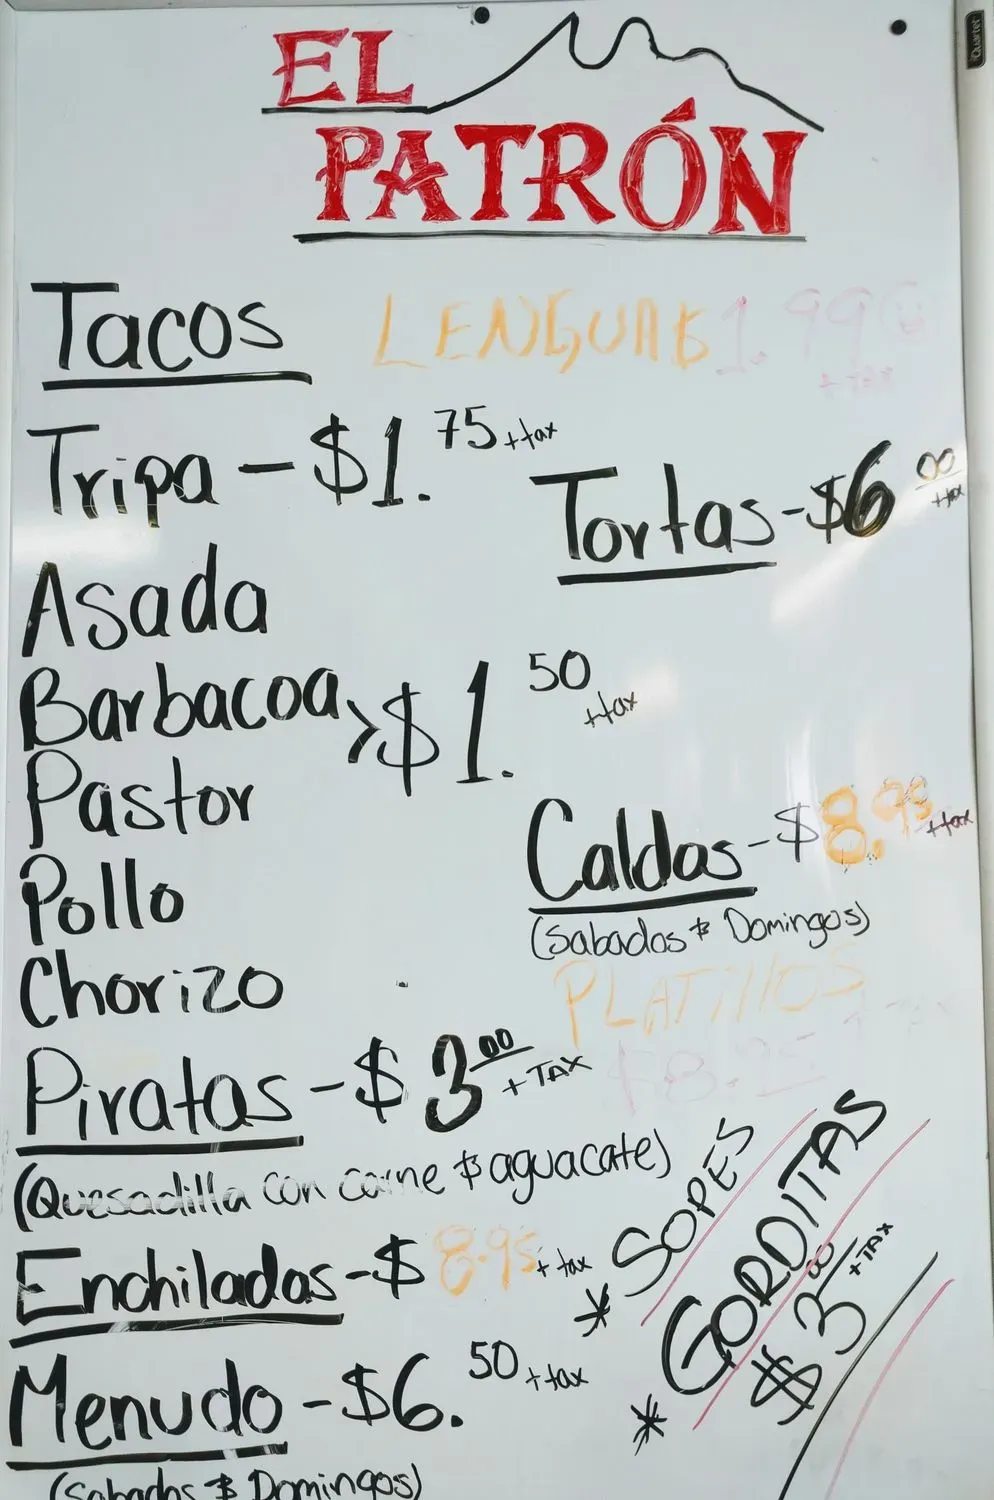 Quartet
EL
PATRÓN
Tacos LENGUA $1.99
+ TAX
Tripa - $1.75 + tax
Tortas - $6.00
+ tax
Asada
Barbacoa > $1.50
+ tax
Pastor
Pollo
Chorizo
Caldos - $8.95 + tax
(Sabados & Domingos)
PLATILLOS
$8.95 + TAX
Piratas - $3.00 + TAX
(Quesadilla con carne & aguacate)
Enchiladas - $8.95 + tax
Menudo - $6.50 + tax
(Sabados & Domingos)
* SOPES
* GORDITAS
$3.00 + TAX